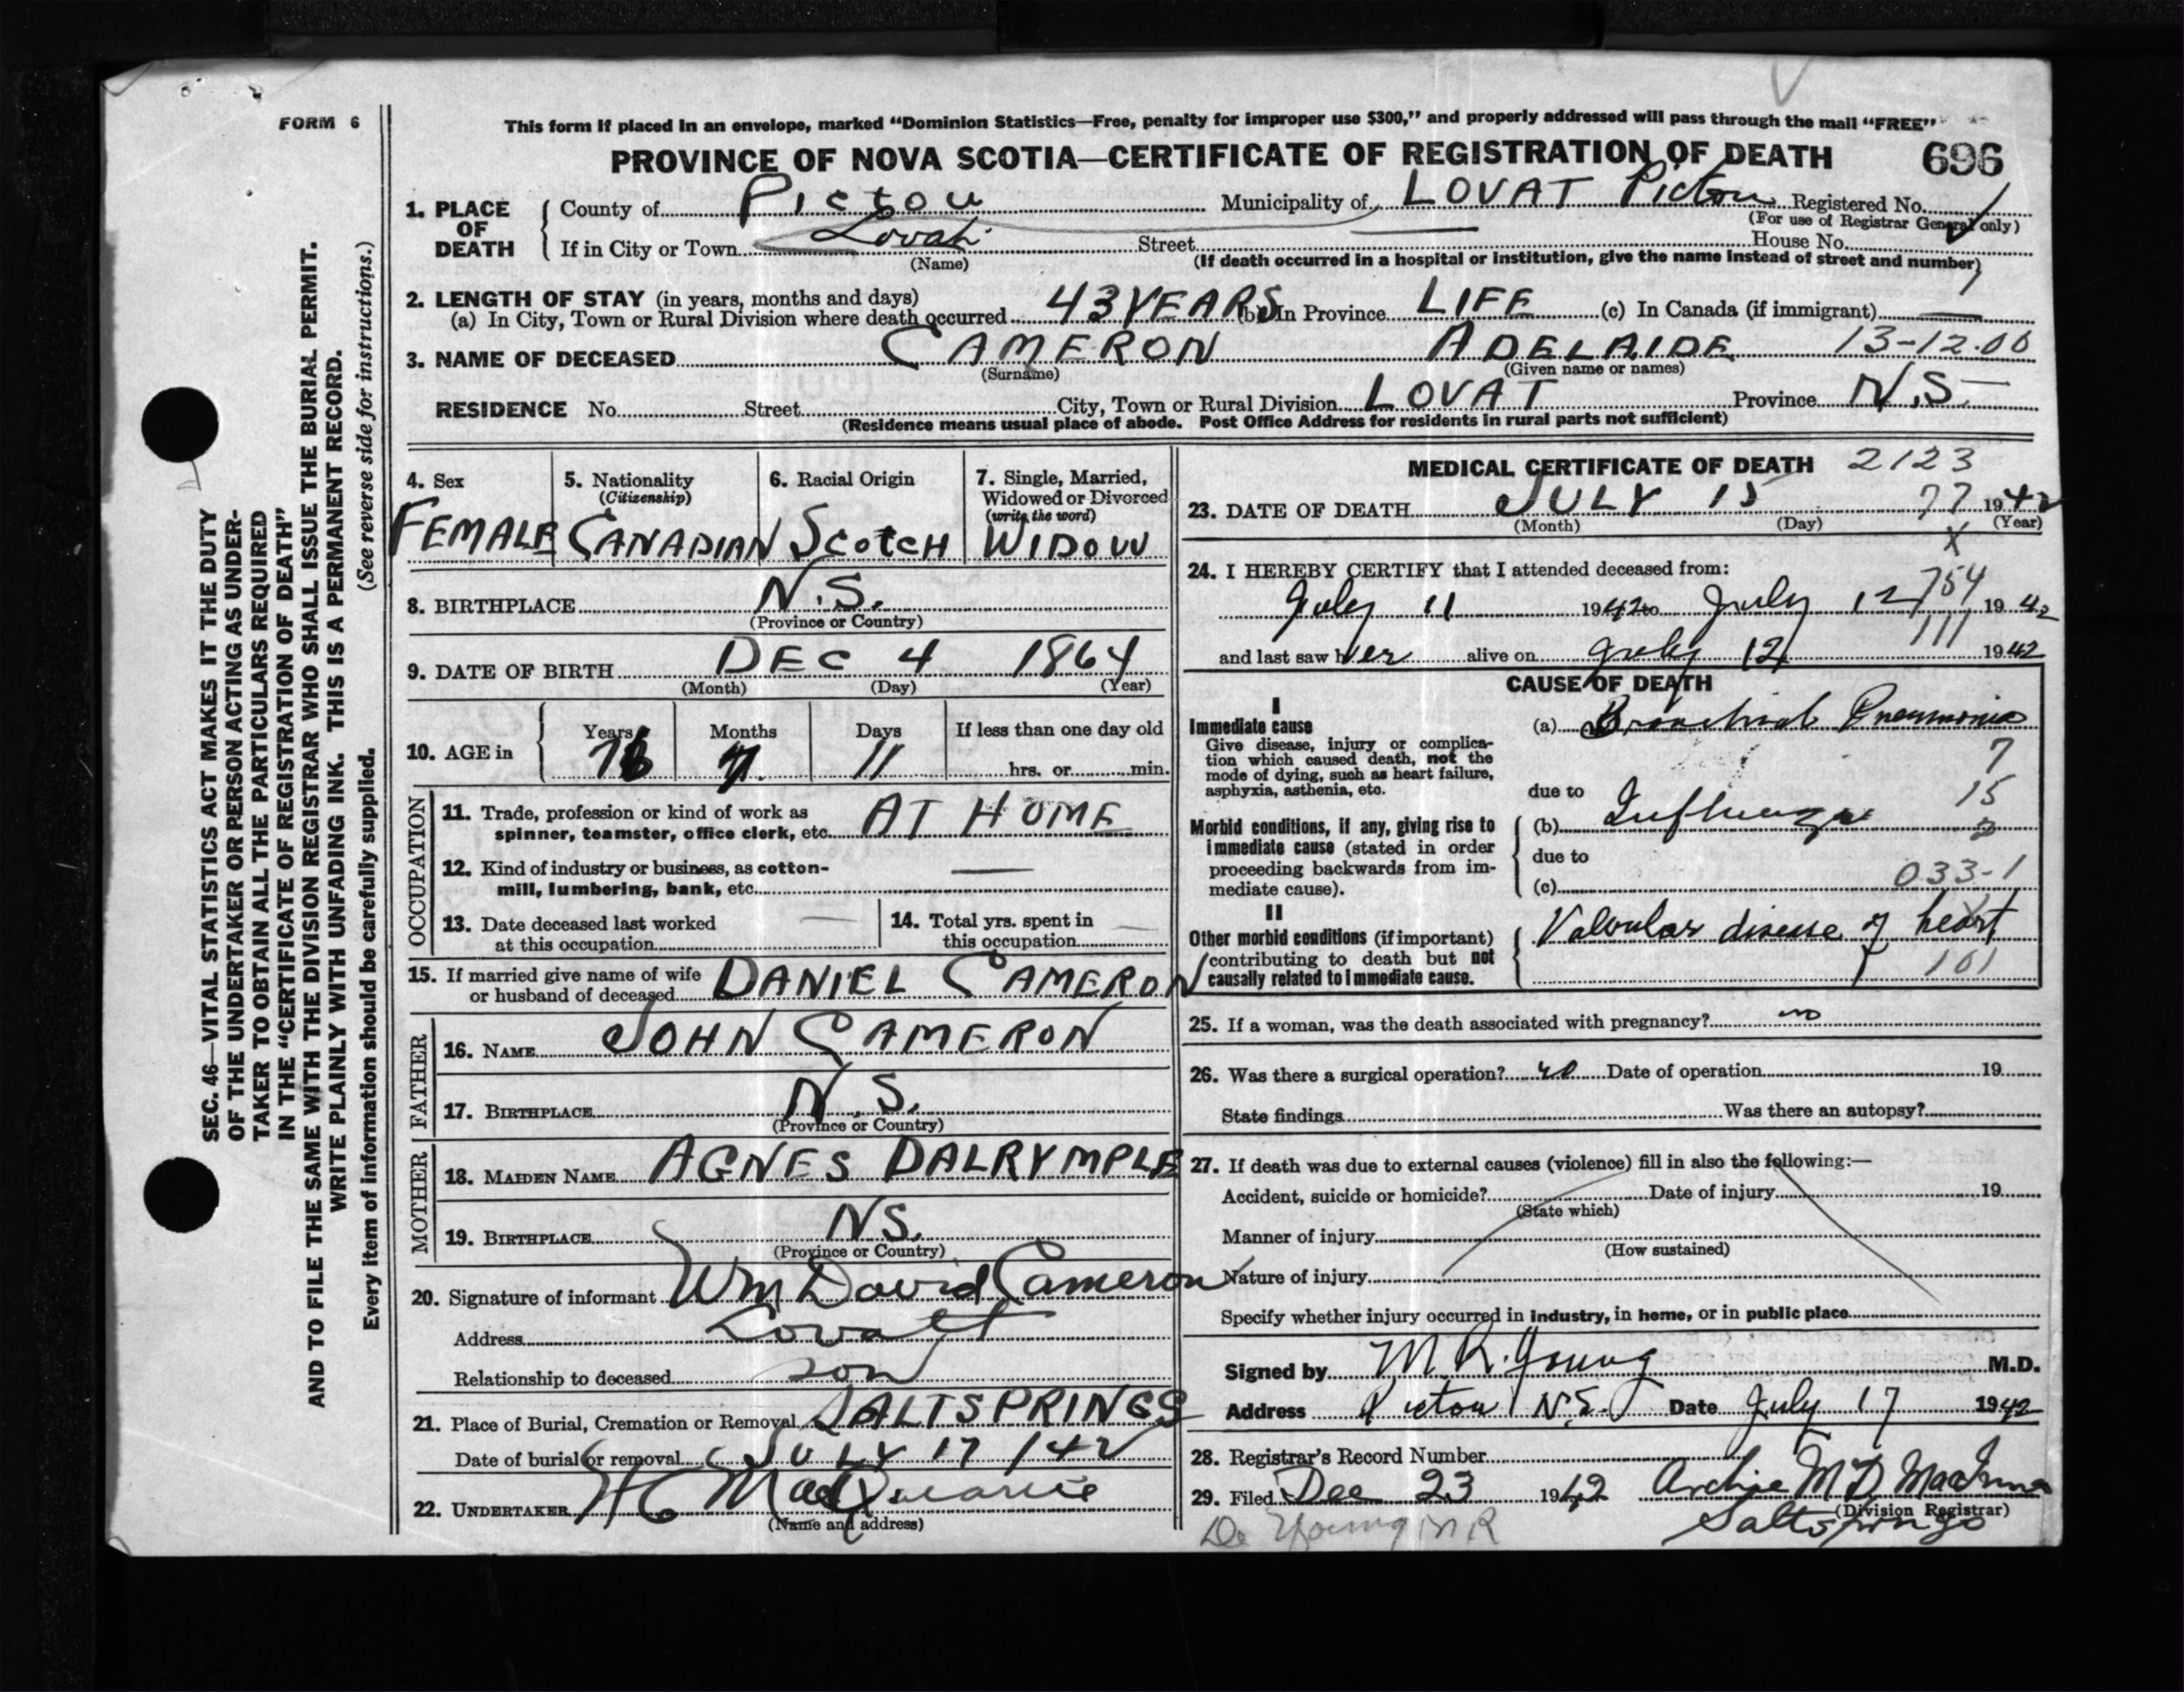 FORM 6
This form if placed in an envelope, marked "Dominion Statistics—Free, penalty for improper use $300," and properly addressed will pass through the mail "FREE"
PROVINCE OF NOVA SCOTIA—CERTIFICATE OF REGISTRATION OF DEATH 696
1. PLACE OF DEATH
County of Pictou Municipality of LOVAT Pictou Registered No.
(For use of Registrar General only)
If in City or Town Lovat Street House No.
(Name) (If death occurred in a hospital or institution, give the name instead of street and number)
2. LENGTH OF STAY (in years, months and days)
(a) In City, Town or Rural Division where death occurred 43 YEARS (b) In Province LIFE (c) In Canada (if immigrant) —
3. NAME OF DECEASED CAMERON ADELAIDE 13-12.00
(Surname) (Given name or names)
RESIDENCE No. Street City, Town or Rural Division LOVAT Province N.S.
(Residence means usual place of abode. Post Office Address for residents in rural parts not sufficient)
4. Sex 5. Nationality 6. Racial Origin 7. Single, Married,
(Citizenship) Widowed or Divorced
(write the word)
FEMALE CANADIAN SCOTCH WIDOW
8. BIRTHPLACE N.S.
(Province or Country)
9. DATE OF BIRTH DEC 4 1864
(Month) (Day) (Year)
10. AGE in Years Months Days If less than one day old
7 11 hrs. or min.
OCCUPATION
11. Trade, profession or kind of work as
spinner, teamster, office clerk, etc. AT HOME
12. Kind of industry or business, as cotton-
mill, lumbering, bank, etc. —
13. Date deceased last worked
at this occupation —
14. Total yrs. spent in
this occupation —
15. If married give name of wife
or husband of deceased DANIEL CAMERON
FATHER
16. NAME JOHN CAMERON
17. BIRTHPLACE N.S.
(Province or Country)
MOTHER
18. MAIDEN NAME AGNES DALRYMPLE
19. BIRTHPLACE NS.
(Province or Country)
20. Signature of informant Wm David Cameron
Address Lovatt
Relationship to deceased son
21. Place of Burial, Cremation or Removal SALTSPRINGS
Date of burial or removal JULY 17 /42
22. UNDERTAKER HC MacQuarrie
(Name and address)
MEDICAL CERTIFICATE OF DEATH 2123
23. DATE OF DEATH JULY 15 77 1942
(Month) (Day) (Year)
X
24. I HEREBY CERTIFY that I attended deceased from:
July 11 1942 to July 12 1942
754
111
and last saw her alive on July 12 1942
CAUSE OF DEATH
I
Immediate cause (a) Bronchial Pneumonia
Give disease, injury or complica-
tion which caused death, not the
mode of dying, such as heart failure,
asphyxia, asthenia, etc.
7
due to 15
Morbid conditions, if any, giving rise to
immediate cause (stated in order
proceeding backwards from im-
mediate cause).
(b) Influenza
due to
(c) 033-1
II
Other morbid conditions (if important)
contributing to death but not
causally related to immediate cause.
Valvular disease of heart
101
25. If a woman, was the death associated with pregnancy? no
26. Was there a surgical operation? no Date of operation 19
State findings Was there an autopsy?
27. If death was due to external causes (violence) fill in also the following:—
Accident, suicide or homicide? Date of injury 19
(State which)
Manner of injury
(How sustained)
Nature of injury
Specify whether injury occurred in industry, in home, or in public place
Signed by M.R. Young M.D.
Address Pictou N.S. Date July 17 1942
28. Registrar's Record Number
29. Filed Dec 23 1942 Archie McD MacInnis
(Division Registrar)
Saltsprings
De Young M R
SEC. 46—VITAL STATISTICS ACT MAKES IT THE DUTY
OF THE UNDERTAKER OR PERSON ACTING AS UNDER-
TAKER TO OBTAIN ALL THE PARTICULARS REQUIRED
IN THE "CERTIFICATE OF REGISTRATION OF DEATH"
AND TO FILE THE SAME WITH THE DIVISION REGISTRAR WHO SHALL ISSUE THE BURIAL PERMIT.
WRITE PLAINLY WITH UNFADING INK. THIS IS A PERMANENT RECORD.
(See reverse side for instructions.)
Every item of information should be carefully supplied.